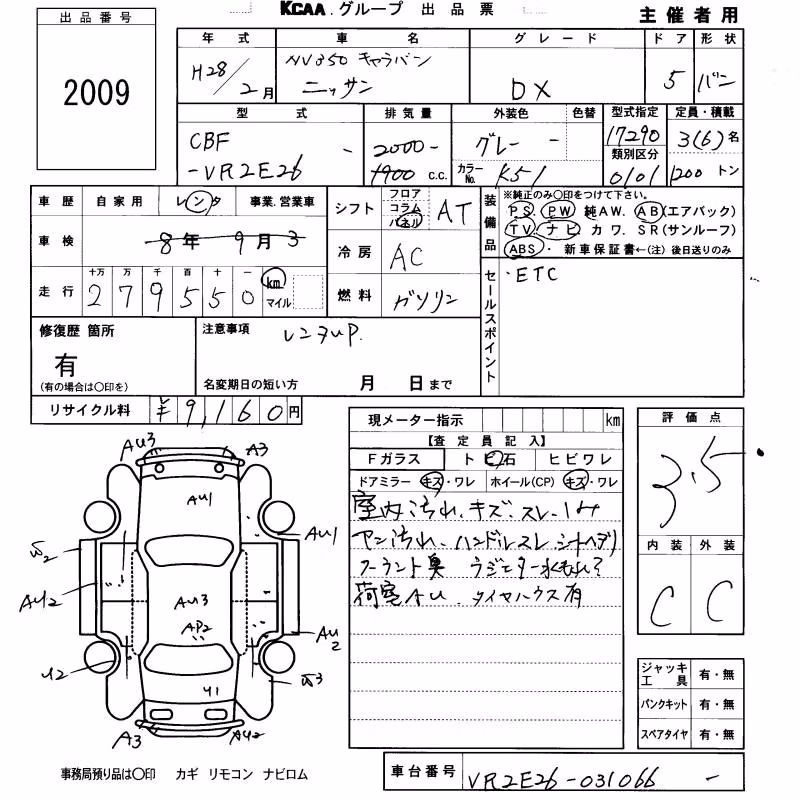 KCAA.グループ 出品票
主催者用
出品番号
2009
年式 車名 グレード ドア 形状
H28/2月 NV350 キャラバン ニッサン DX 5 バン
型式 排気量 外装色 色替 型式指定 定員・積載
CBF 2000 - グレー - 17290 3(6)名
類別区分
-VR2E26 - 1900 c.c. カラーNo. K51 0101 1200 トン
車歴 自家用 レンタ 事業.営業車
シフト フロア コラム パネル AT
装備品 ※純正のみ○印をつけて下さい。
PS. PW 純AW. AB(エアバック)
TV ナビ カワ. SR(サンルーフ)
ABS・新車保証書←(注)後日送りのみ
車検 8年 9月 3
冷房 AC
走行 十万 万 千 百 十 一
279550 km マイル
燃料 ガソリン
セールスポイント
・ETC
修復歴 箇所
有
(有の場合は○印を)
注意事項
レンタUP.
名変期日の短い方 月 日まで
リサイクル料 ¥9,160円
現メーター指示 km
【査定員記入】
Fガラス トビ石 ヒビワレ
ドアミラー キズ・ワレ ホイール(CP) キズ・ワレ
室内汚れ、キズ、スレ、
汚れ、ハンドルスレ シートヘタリ
臭 ラジエター水もれ?
荷室AU. タイヤハウス有
評価点
3.5
内装 外装
C C
ジャッキ工具 有・無
パンクキット 有・無
スペアタイヤ 有・無
AU3
A3
AU1
AU1
W2
AU2
AU3
AP2
AU2
U2
W3
U1
A3
AU2
事務局預り品は○印 カギ リモコン ナビロム
車台番号 VR2E26-031066 -